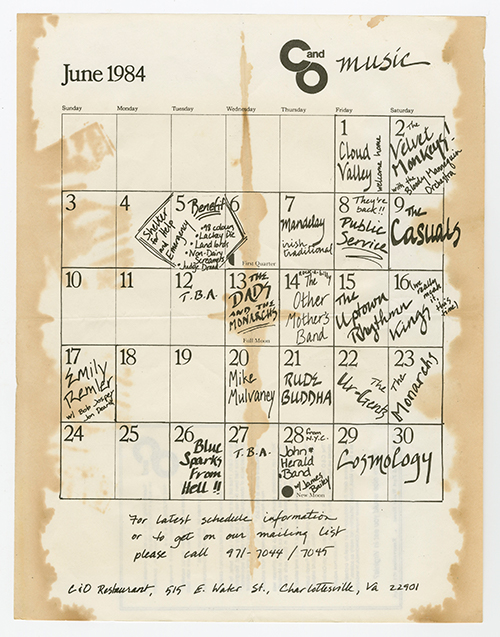 C and O
music
June 1984
Sunday Monday Tuesday Wednesday Thursday Friday Saturday
1
Cloud
Valley
welcome home
2 The
Velvet
Monkeys!
with the
Bloody Mannequin
Orchestra
3
4
Shelter
for Help
and
Emergency
5 Benefit
98 colours
Lackey Die
Landlords
Non-Dairy
Screamers
Judge Dread
6
First Quarter
7
Mandelay
irish
traditional
8 They're
back!!
Public
Service
9 The
Casuals
10
11
12
T.B.A.
13 THE
DADS
AND THE
MONARCHS
Full Moon
14
The
Other
Mother's
Band
15
The
Uptown
Rhythm
Kings
16
(no,
really
mean
it
this
time)
17
Emily
Remler
w/ Bob
18
19
20
Mike
Mulvaney
21
RUDE
BUDDHA
22
The
23
The
Monarchs
24
25
26
Blue
Sparks
From
Hell!!
27
T.B.A.
28 from
N.Y.C.
John
Herald
Band
w/ James
Bailey
New Moon
29
30
Cosmology
For latest schedule information
or to get on our mailing list
please call 971-7044 / 7045
C&O Restaurant, 515 E. Water St., Charlottesville, Va 22901